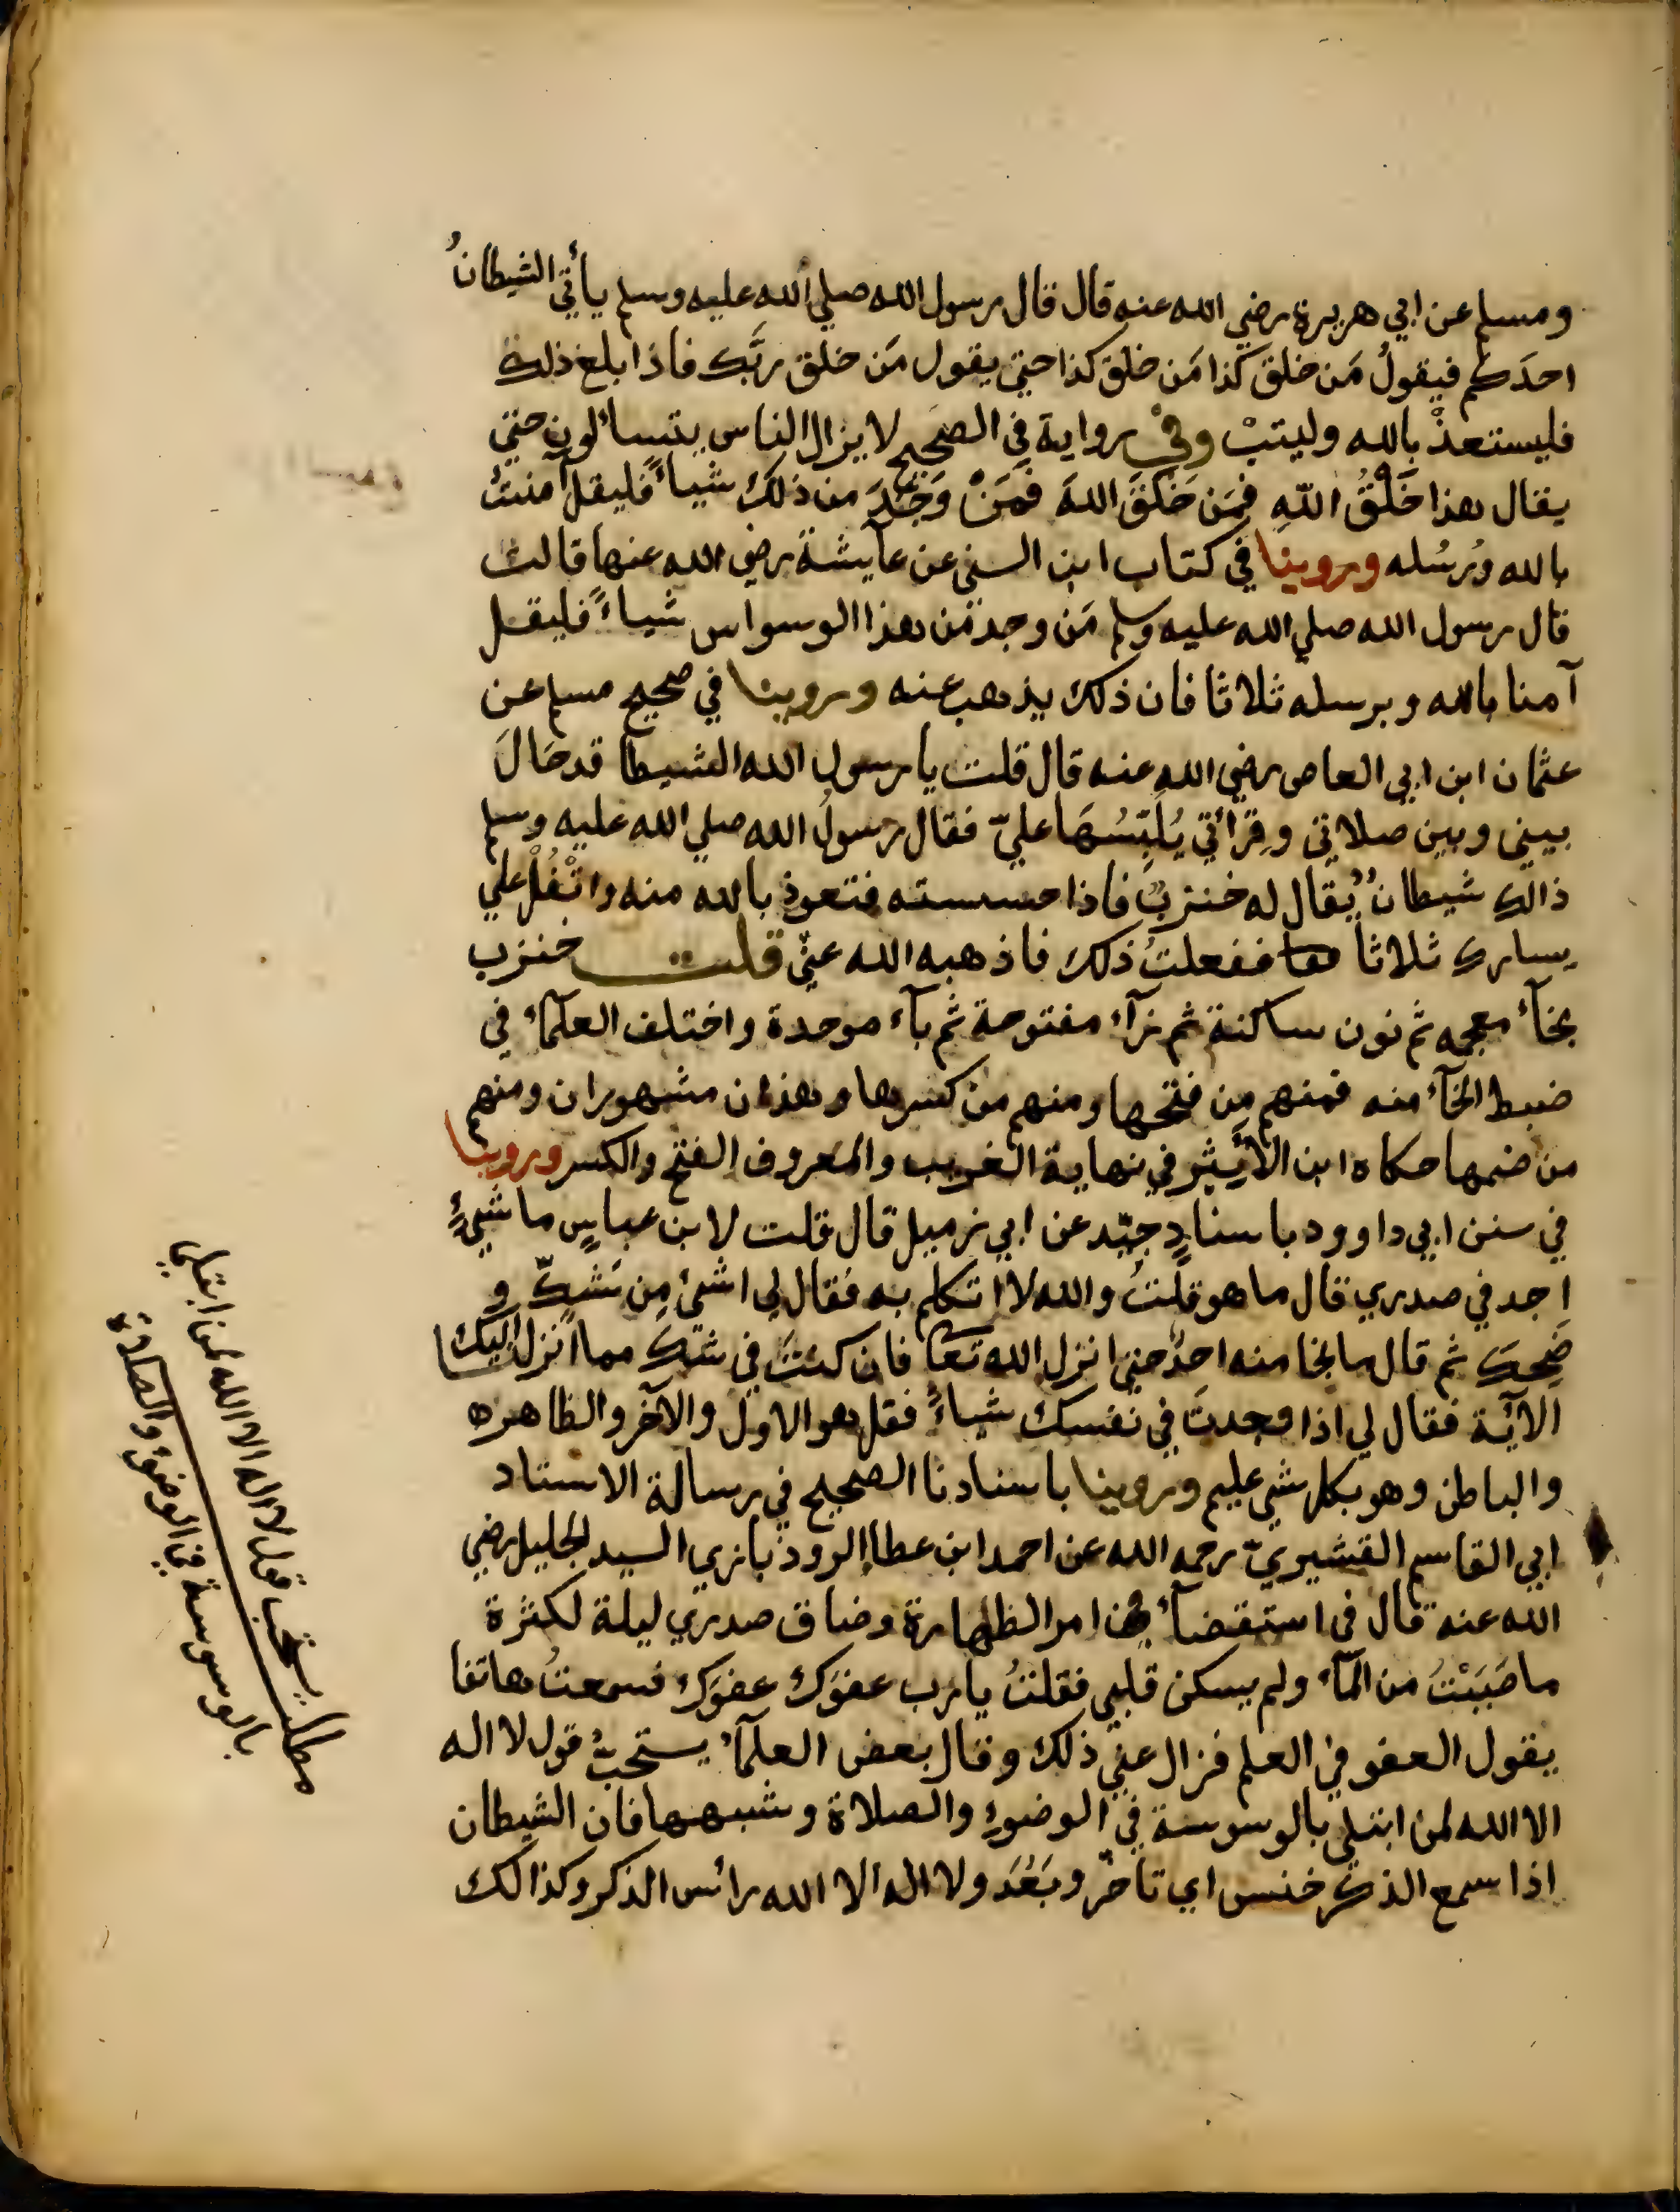 ومسلم عن ابي هريرة رضي الله عنه قال قال رسول الله صلي الله عليه وسلم يأتي الشيطانُ
احدَكم فيقولُ مَن خلق كذا مَن خلق كذا حتي يقول مَن خلق ربَّك فاذا بلغ ذلك
فليستعذْ بالله ولينتهْ وفي رواية في الصحيح لا يزال الناس يتسائلون حتي
يقال هذا خَلْقُ اللهِ فمَن خَلَقَ اللهَ فمَنْ وَجَدَ من ذلك شياءً فليقل آمنتُ
بالله ورُسُله وروينا في كتاب ابن السني عن عايشة رضي الله عنها قالت
قال رسول الله صلي الله عليه وسلم مَن وجد من هذا الوسواس شياءً فليقل
آمنا بالله وبرسله ثلاثا فان ذلك يذهب عنه وروينا في صحيح مسلم عن
عثمان ابن ابي العاص رضي الله عنه قال قلت يا رسول الله الشيطا قد حَالَ
بيني وبين صلاتي وقِرْأتي يُلَبِّسُهَا عليّ فقال رسولُ الله صلي الله عليه وسلم
ذالك شيطانٌ يُقال له خنزبٌ فاذا حسسته فتعوذ بالله منه واتْفُلْ علي
يسارك ثلاثاً ففعلتُ ذلك فاذهبه الله عنّي قلت خنزب
بخآء معجمه ثم نون ساكنة ثم زآء مفتوحة ثم بآء موحدة واختلف العلمآء في
ضبط الخآء منه فمنهم من فتحها ومنهم من كسرها وهذان مشهوران ومنهم
من ضمها حكاه ابن الأثير في نهاية الغريب والمعروف الفتح والكسر وروينا
في سنن ابي داوود باسنادٍ جيّد عن ابي زميل قال قلت لابن عباسٍ ما شيءٍ
اجد في صدري قال ما هو قلتُ والله لا اتكلم به فقال لي اشئ مِن شكٍّ و
ضحك ثم قال ما نجا منه احدٌ حتي انزل الله تعا فان كنتَ في شك مما انزل اليك
الآية فقال لي اذا وجدتَ في نفسك شياءً فقل هو الاول والآخر والظاهره
والباطن وهو بكل شي عليم وروينا باسنادنا الصحيح في رسالة الاستاد
ابي القاسم القشيريّ رحمه الله عن احمد ابن عطا الروذباري السيد الجليل رضي
الله عنه قال في استقضآء من امر الطهارة وضاق صدري ليلة لكثرة
ما صَبَبْتُ من المآء ولم يسكن قلبي فقلتُ يا رب عفوَك عفوَك فسمعتُ هاتفا
يقول العفو في العلم فزال عني ذلك وقال بعض العلمآء يستحبّ قول لا اله
الا الله لمن ابتلي بالوسوسة في الوضوء والصلاة وشبهها فان الشيطان
اذا سمع الذكر خنس اي تأخر وبَعُدَ ولا اله الا الله رائس الذكر وكذالك
مطلب يستحب قول لا اله الا الله لمن ابتلي
بالوسوسة في الوضوء والصلاة